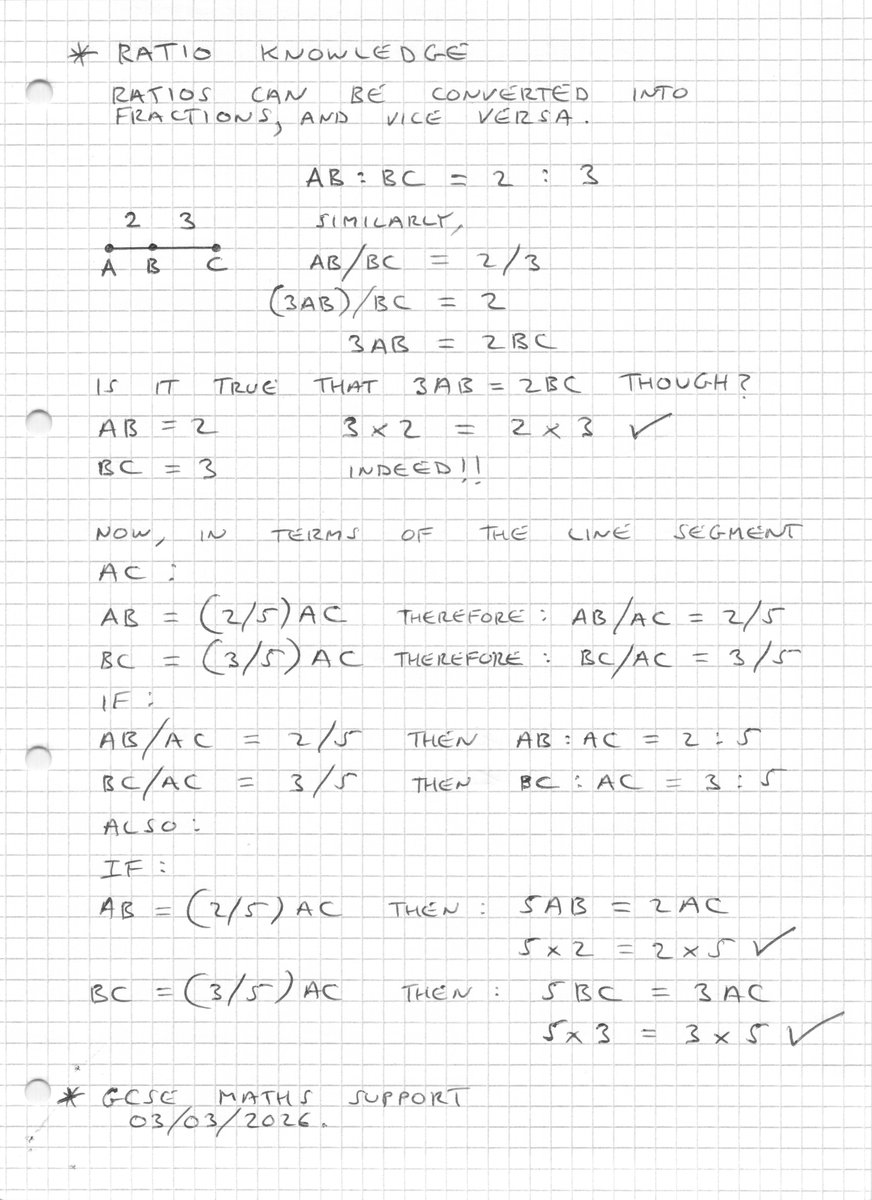 * RATIO KNOWLEDGE
RATIOS CAN BE CONVERTED INTO
FRACTIONS, AND VICE VERSA.
AB : BC = 2 : 3
2 3
SIMILARLY,
A B C
AB/BC = 2/3
(3AB)/BC = 2
3AB = 2BC
IS IT TRUE THAT 3AB = 2BC THOUGH?
AB = 2 3 × 2 = 2 × 3 ✓
BC = 3 INDEED!!
NOW, IN TERMS OF THE LINE SEGMENT
AC :
AB = (2/5) AC THEREFORE : AB/AC = 2/5
BC = (3/5) AC THEREFORE : BC/AC = 3/5
IF :
AB/AC = 2/5 THEN AB : AC = 2 : 5
BC/AC = 3/5 THEN BC : AC = 3 : 5
ALSO :
IF :
AB = (2/5) AC THEN : 5AB = 2AC
5 × 2 = 2 × 5 ✓
BC = (3/5) AC THEN : 5BC = 3AC
5 × 3 = 3 × 5 ✓
* GCSE MATHS SUPPORT
03/03/2026.